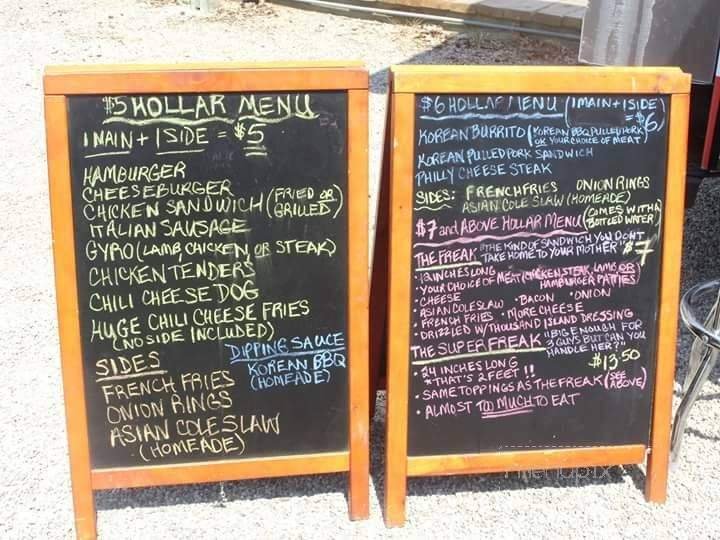 $5 HOLLAR MENU
1 MAIN + 1 SIDE = $5
HAMBURGER
CHEESEBURGER
CHICKEN SANDWICH (FRIED OR GRILLED)
ITALIAN SAUSAGE
GYRO (LAMB, CHICKEN, OR STEAK)
CHICKEN TENDERS
CHILI CHEESE DOG
HUGE CHILI CHEESE FRIES
(NO SIDE INCLUDED)
SIDES
FRENCH FRIES
ONION RINGS
ASIAN COLESLAW
(HOMEADE)
DIPPING SAUCE
KOREAN BBQ
(HOMEADE)
$6 HOLLAR MENU (1 MAIN + 1 SIDE) = $6
KOREAN BURRITO (KOREAN BBQ PULLED PORK
OR YOUR CHOICE OF MEAT)
KOREAN PULLED PORK SANDWICH
PHILLY CHEESE STEAK
SIDES: FRENCH FRIES ONION RINGS
ASIAN COLE SLAW (HOMEADE)
$7 and ABOVE HOLLAR MENU (COMES WITH A
BOTTLED WATER)
THE FREAK "THE KIND OF SANDWICH YOU DON'T
TAKE HOME TO YOUR MOTHER" $7
• 12 INCHES LONG
• YOUR CHOICE OF MEAT (CHICKEN, STEAK, LAMB, OR
HAMBURGER PATTIES)
• CHEESE
• ASIAN COLESLAW • BACON • ONION
• FRENCH FRIES • MORE CHEESE
• DRIZZLED W/ THOUSAND ISLAND DRESSING
THE SUPER FREAK "BIG ENOUGH FOR
3 GUYS BUT CAN YOU
HANDLE HER?"
$13.50
• 24 INCHES LONG
* THAT'S 2 FEET!!
• SAME TOPPINGS AS THE FREAK (SEE ABOVE)
• ALMOST TOO MUCH TO EAT
MenuPix